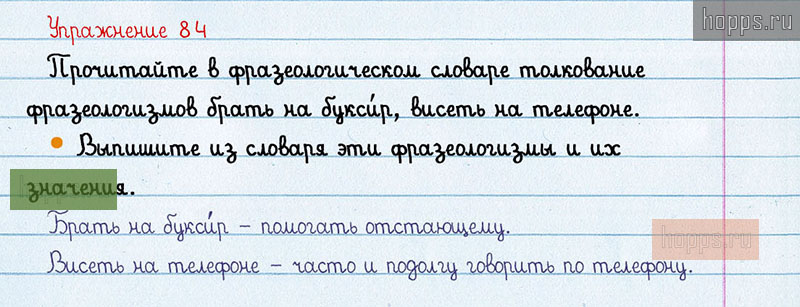 Упражнение 84
hopps.ru
Прочитайте в фразеологическом словаре толкование
фразеологизмов брать на букси́р, висеть на телефоне.
• Выпишите из словаря эти фразеологизмы и их
значения.
Брать на букси́р – помогать отстающему.
hopps.ru
Висеть на телефоне – часто и подолгу говорить по телефону.